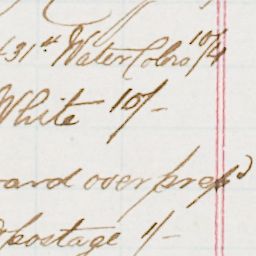 431st Water Colors 10/4
White 10/-
ard over prepd
postage 1/-